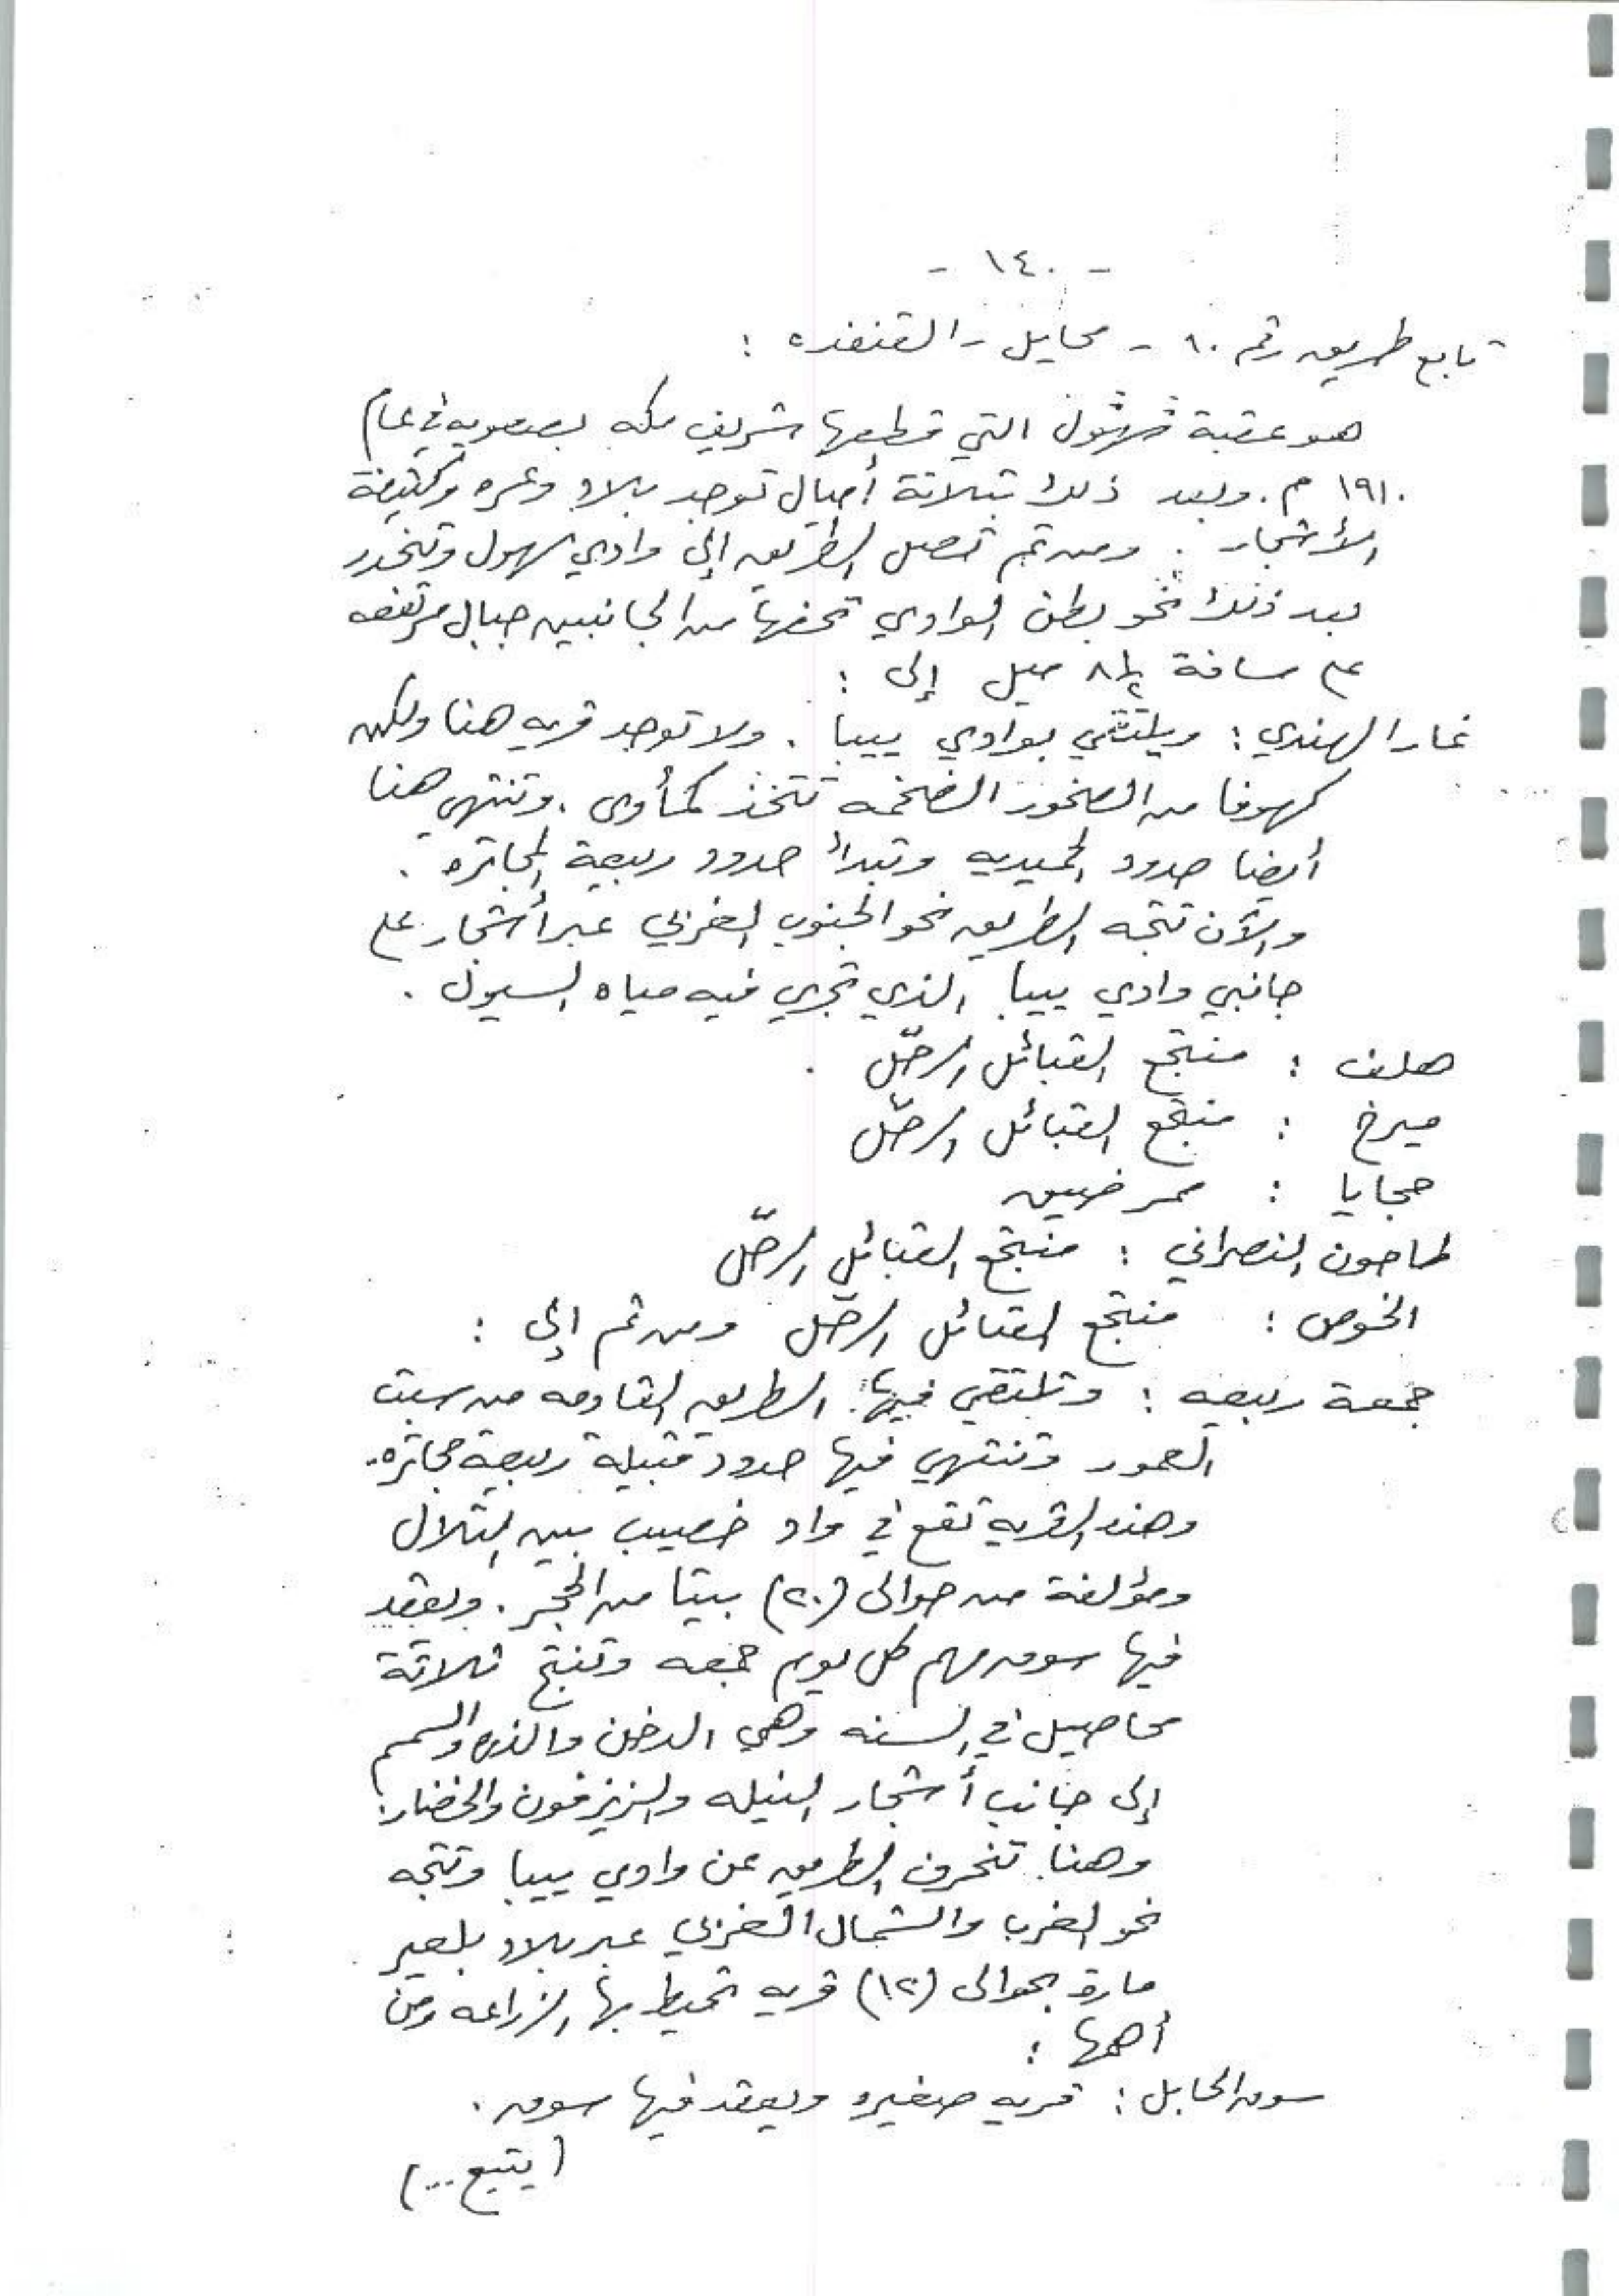 - ١٤٠ -
تابع طريق رقم ١٠ - محايل - القنفذه :
هو عقبة شهول التي قطعها شريف مكه بصعوبه في عام
١٩١٠ م . وبعد ذلك بثلاثة أميال توجد بلاد وعره وكثيفة
الأشجار . ومن ثم تصل الطريق إلى وادي سهول وتنحدر
بعد ذلك نحو بطن الوادي تحفها من الجانبين جبال مرتفعه
على مسافة ٨½ ميل إلى :
غار الهندي : ويلتقي بوادي ييبا . ولا توجد قريه هنا ولكن
كهوفا من الصخور الضخمه تتخذ كمأوى . وتنتهي هنا
أيضا حدود الحميديه وتبدأ حدود ربيعة المجاتره .
والآن تتجه الطريق نحو الجنوب الغربي عبر أشجار على
جانبي وادي ييبا الذي تجري فيه مياه السيول .
هلف : منتجع القبائل الرحّل .
ميرخ : منتجع القبائل الرحّل
حجايا : ممر ضيق
طاحون النصراني : منتجع القبائل الرحّل
الخوص : منتجع القبائل الرحّل ومن ثم إلى :
جمعة ربيعه : وتلتقي فيها الطريق القادمه من سبت
العمور وتنتهي فيها حدود قبيلة ربيعة مجاتره .
وهذه القريه تقع في واد خصيب بين التلال
ومؤلفة من حوالى (٢٠) بيتا من الحجر . ويعقد
فيها سوق مهم كل يوم جمعه وتنتج ثلاثة
محاصيل في السنه وهي الدخن والذره والسمسم
إلى جانب أشجار النيله والزيزفون والخضار .
وهنا تنحرف الطريق عن وادي ييبا وتتجه
نحو الغرب والشمال الغربي عبر بلاد بلعير
مارة بحوالى (١٢) قريه تحيط بها الزراعه ومن
أهمها :
سوق الحابل : قريه صغيره ويعقد فيها سوق .
(يتبع ...)